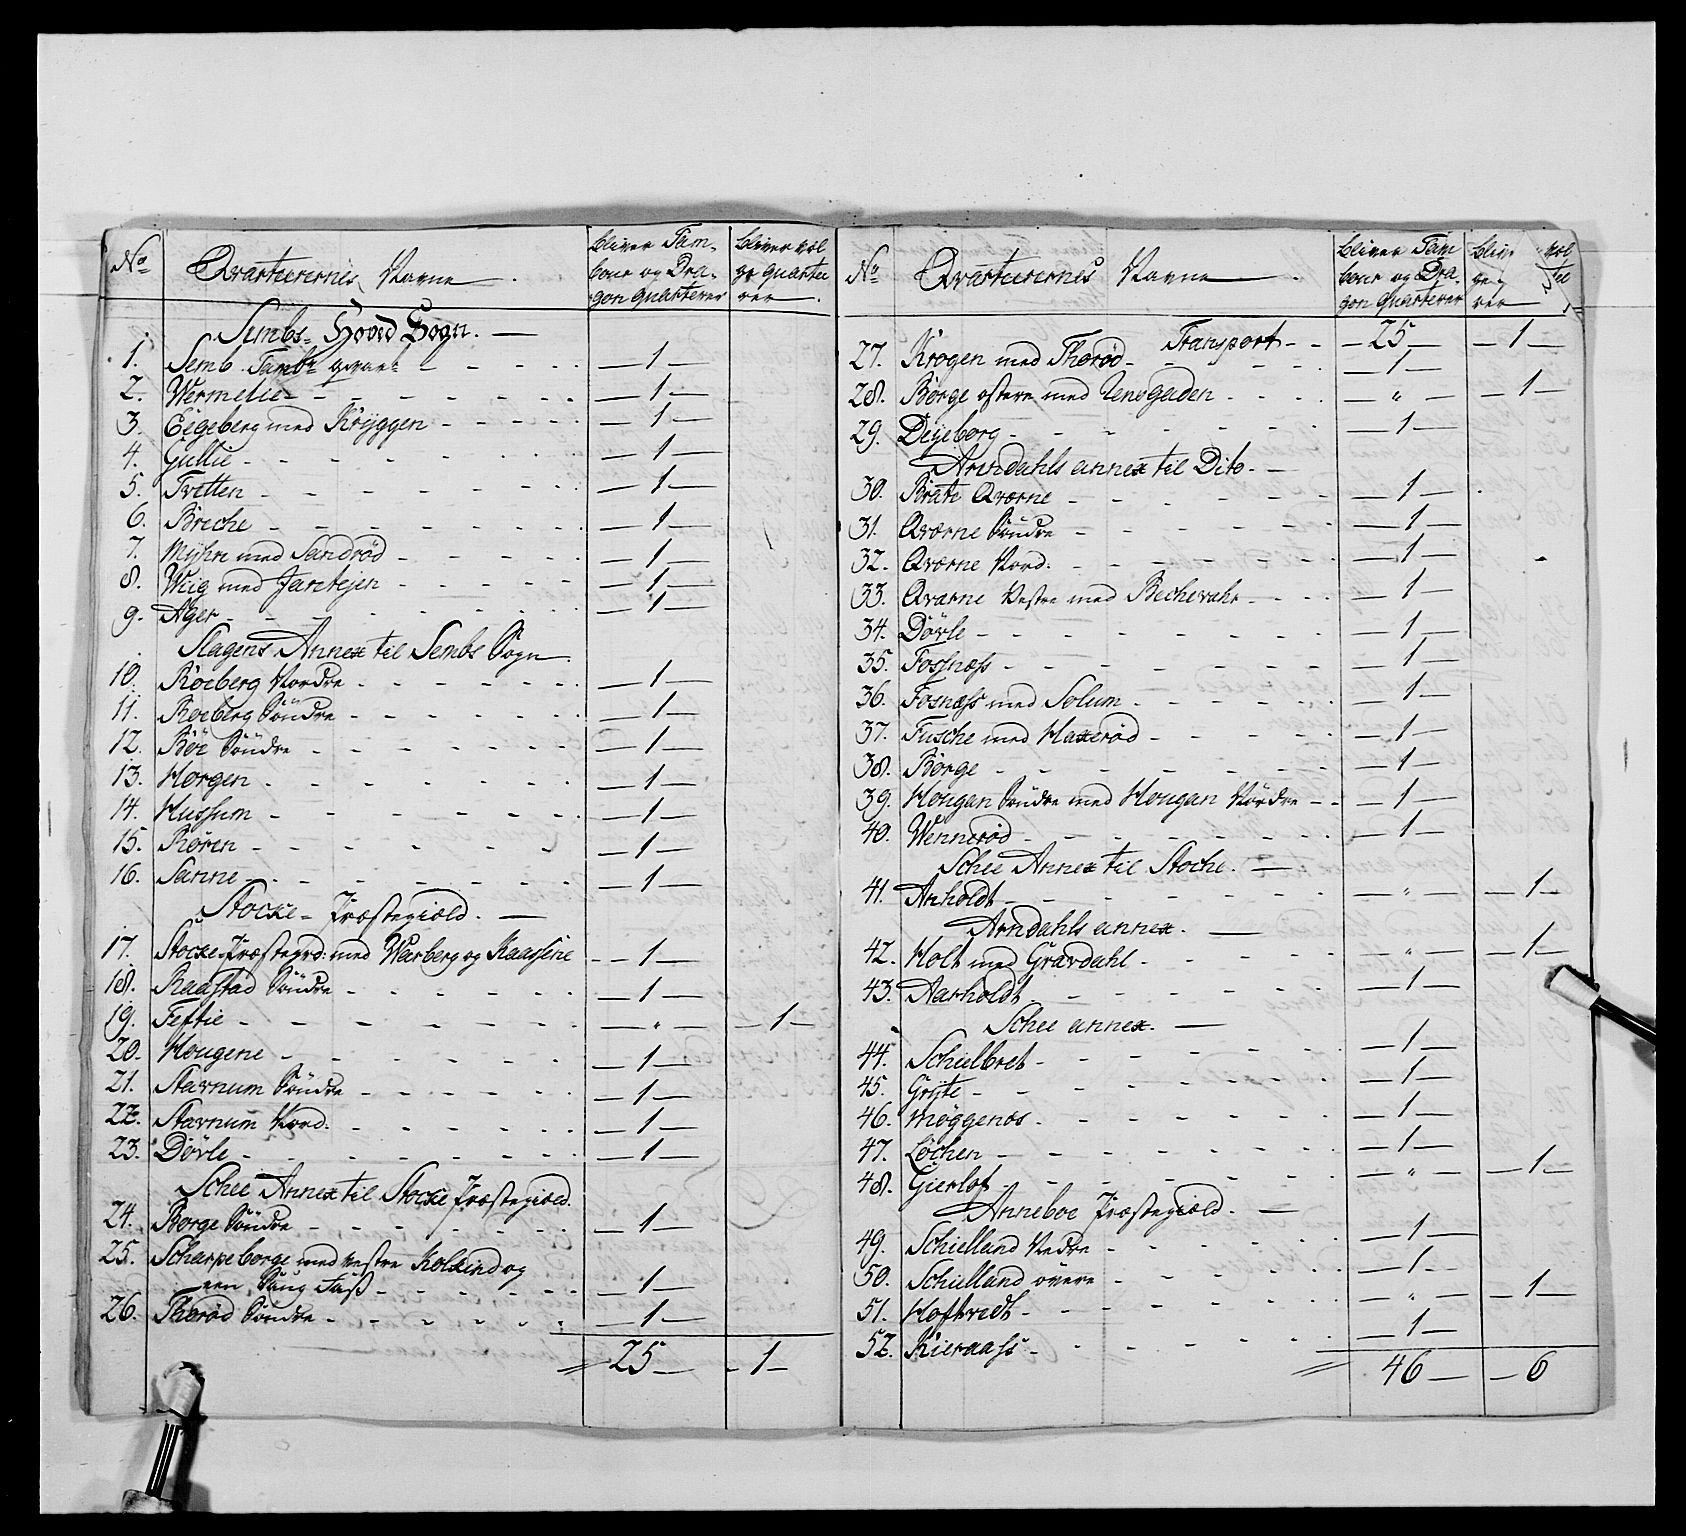 No Qvarteerernes Navne. bliver Tam- bliver vol
bour og Dra- ge quartee
gon quarterer rer
Sembs Hoved Sogn.
1. Semb Tambr — 1 —
2. Wermelie — 1 —
3. Eegeberg med Kryggen — 1 —
4. Gullie — 1 —
5. Tvetten — 1 —
6. Breche — 1 —
7. Myhre med Sandrød — 1 —
8. Wiig med Jarstejen — 1 —
9. Ager — 1 —
Slagens Annex til Sembs Sogn.
10. Roeberg Nordre — 1 —
11. Roeberg Søndre — 1 —
12. Bøe Søndre — 1 —
13. Horgen — 1 —
14. Hussum — 1 —
15. Roren — 1 —
16. Sanne — 1 —
Stocke Præstegield.
17. Stocke Præstegrd: med Warberg og Kaassene — 1 —
18. Raastad Søndre — 1 —
19. Feftie — " — — 1 —
20. Hougene — 1 —
21. Stavnum Søndre — 1 —
22. Stavnum Nord: — 1 —
23. Døvle — 1 —
Schee Annex til Stocke Præstegield.
24. Borge Søndre — 1 —
25. Scharpeborge med Vestre Kolkind og
een Taß — 1 —
26. Thorød Søndre — 1 —
25 — 1 —
No Qvarteerernes Navne. bliver Tam bliv vol
bour og Dra- ge
gon quarterer rer
Transport — 25 — — 1 —
27. Krogen med Thorød — 1 —
28. Borge østere med — " — — 1 —
29. Deyeborg — 1 —
Arndahls annex til Dito.
30. Brate Qværne — 1 —
31. Qværne Søndre — 1 —
32. Qværne Nord: — 1 —
33. Qvarne Vestre med Bechevahr — 1 —
34. Døvle — 1 —
35. Fossnæss — 1 —
36. Fosnæss med Solum — 1 —
37. Fusche med Haxerød — 1 —
38. Borge — 1 —
39. Hougan Søndre med Hougan Nordre — 1 —
40. Wennerød — 1 —
Schee Annex til Stoche.
41. Anholdt — " — — 1 —
Arndahls annex.
42. Holt med Gravdahl — " — — 1 —
43. Aarholdt — 1 —
Schee annex.
44. Schielbret — 1 —
45. Gryte — 1 —
46. Møggenos — 1 —
47. Løchen — 1 —
48. Gierlof — " — — 1 —
Anneboe Præstegield.
49. Schielland Nedre — 1 —
50. Schielland øvere — 1 —
51. Hoftvedt — " — — 1 —
52. Kieraass — 1 —
46 — — 6